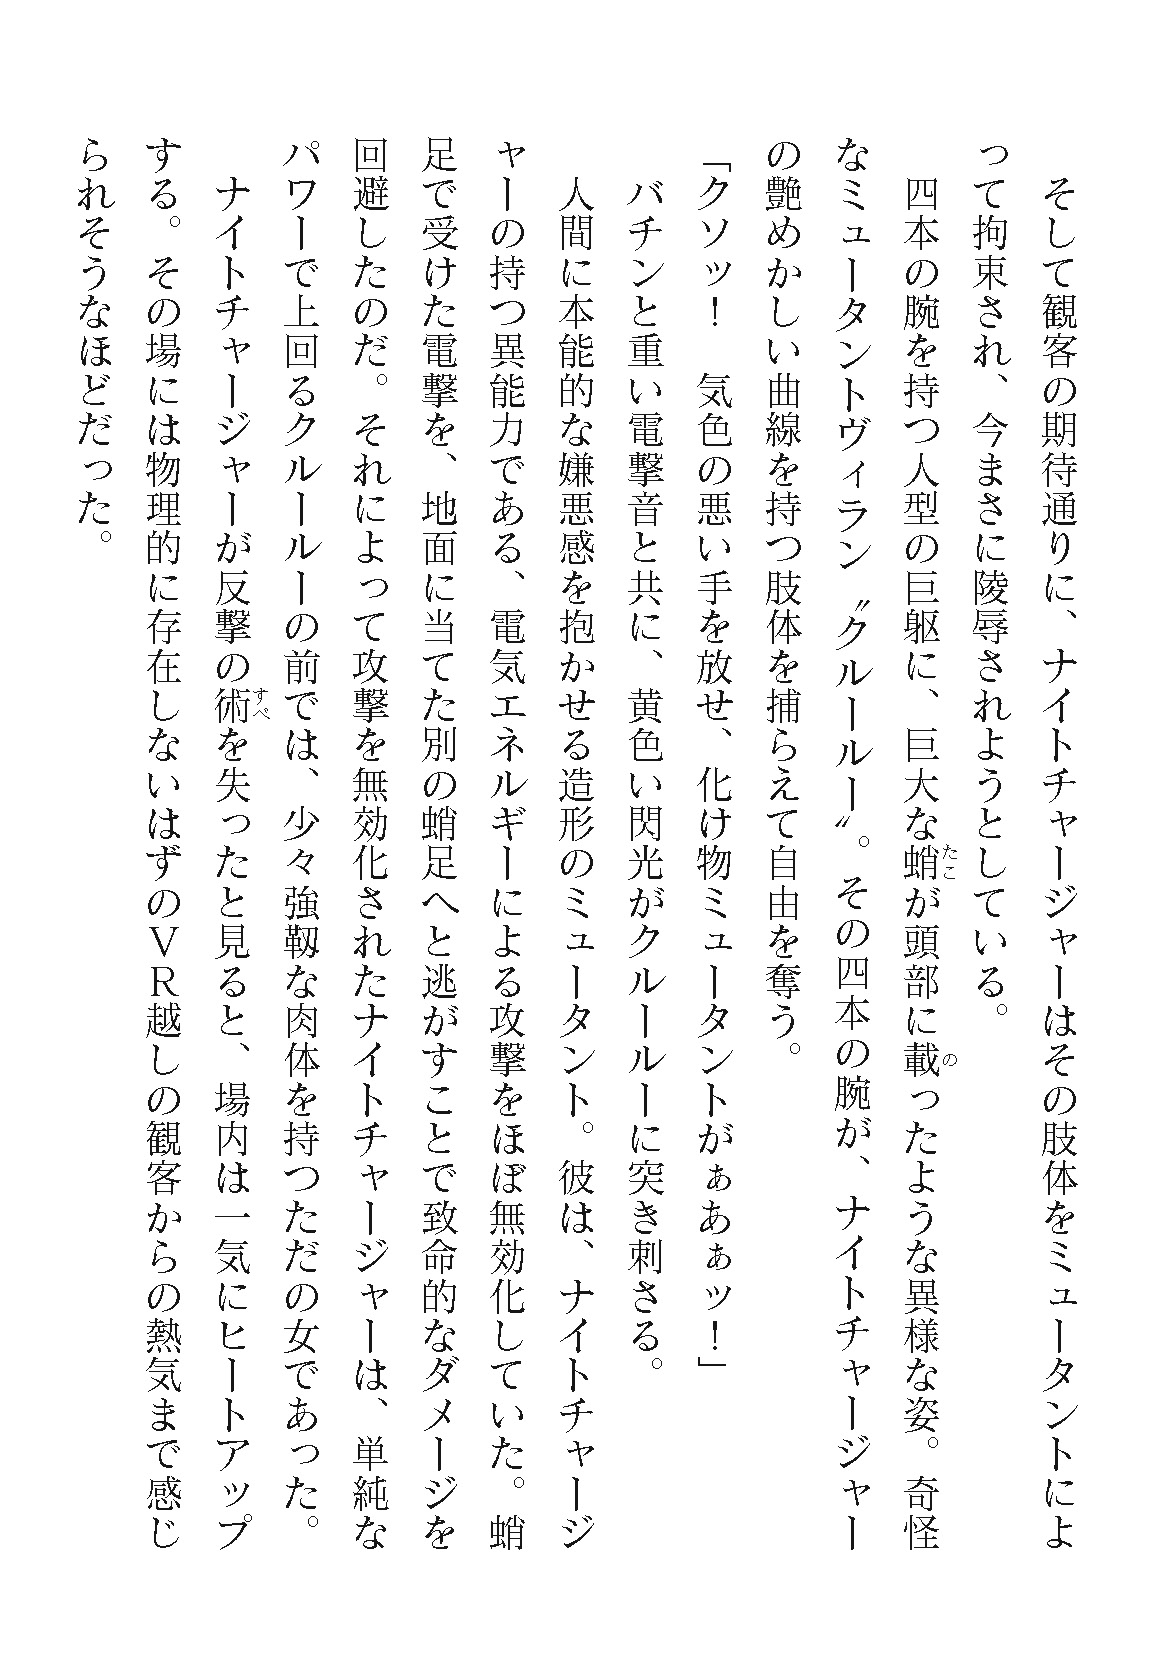 そして観客の期待通りに、ナイトチャージャーはその肢体をミュータントによ
って拘束され、今まさに陵辱されようとしている。
四本の腕を持つ人型の巨躯に、巨大な蛸が頭部に載ったような異様な姿。奇怪
なミュータントヴィラン〝クルールー〟。その四本の腕が、ナイトチャージャー
の艶めかしい曲線を持つ肢体を捕らえて自由を奪う。
「クソッ！　気色の悪い手を放せ、化け物ミュータントがぁあぁッ！」
バチンと重い電撃音と共に、黄色い閃光がクルールーに突き刺さる。
人間に本能的な嫌悪感を抱かせる造形のミュータント。彼は、ナイトチャージ
ャーの持つ異能力である、電気エネルギーによる攻撃をほぼ無効化していた。蛸
足で受けた電撃を、地面に当てた別の蛸足へと逃がすことで致命的なダメージを
回避したのだ。それによって攻撃を無効化されたナイトチャージャーは、単純な
パワーで上回るクルールーの前では、少々強靱な肉体を持つただの女であった。
ナイトチャージャーが反撃の術を失ったと見ると、場内は一気にヒートアップ
する。その場には物理的に存在しないはずのＶＲ越しの観客からの熱気まで感じ
られそうなほどだった。